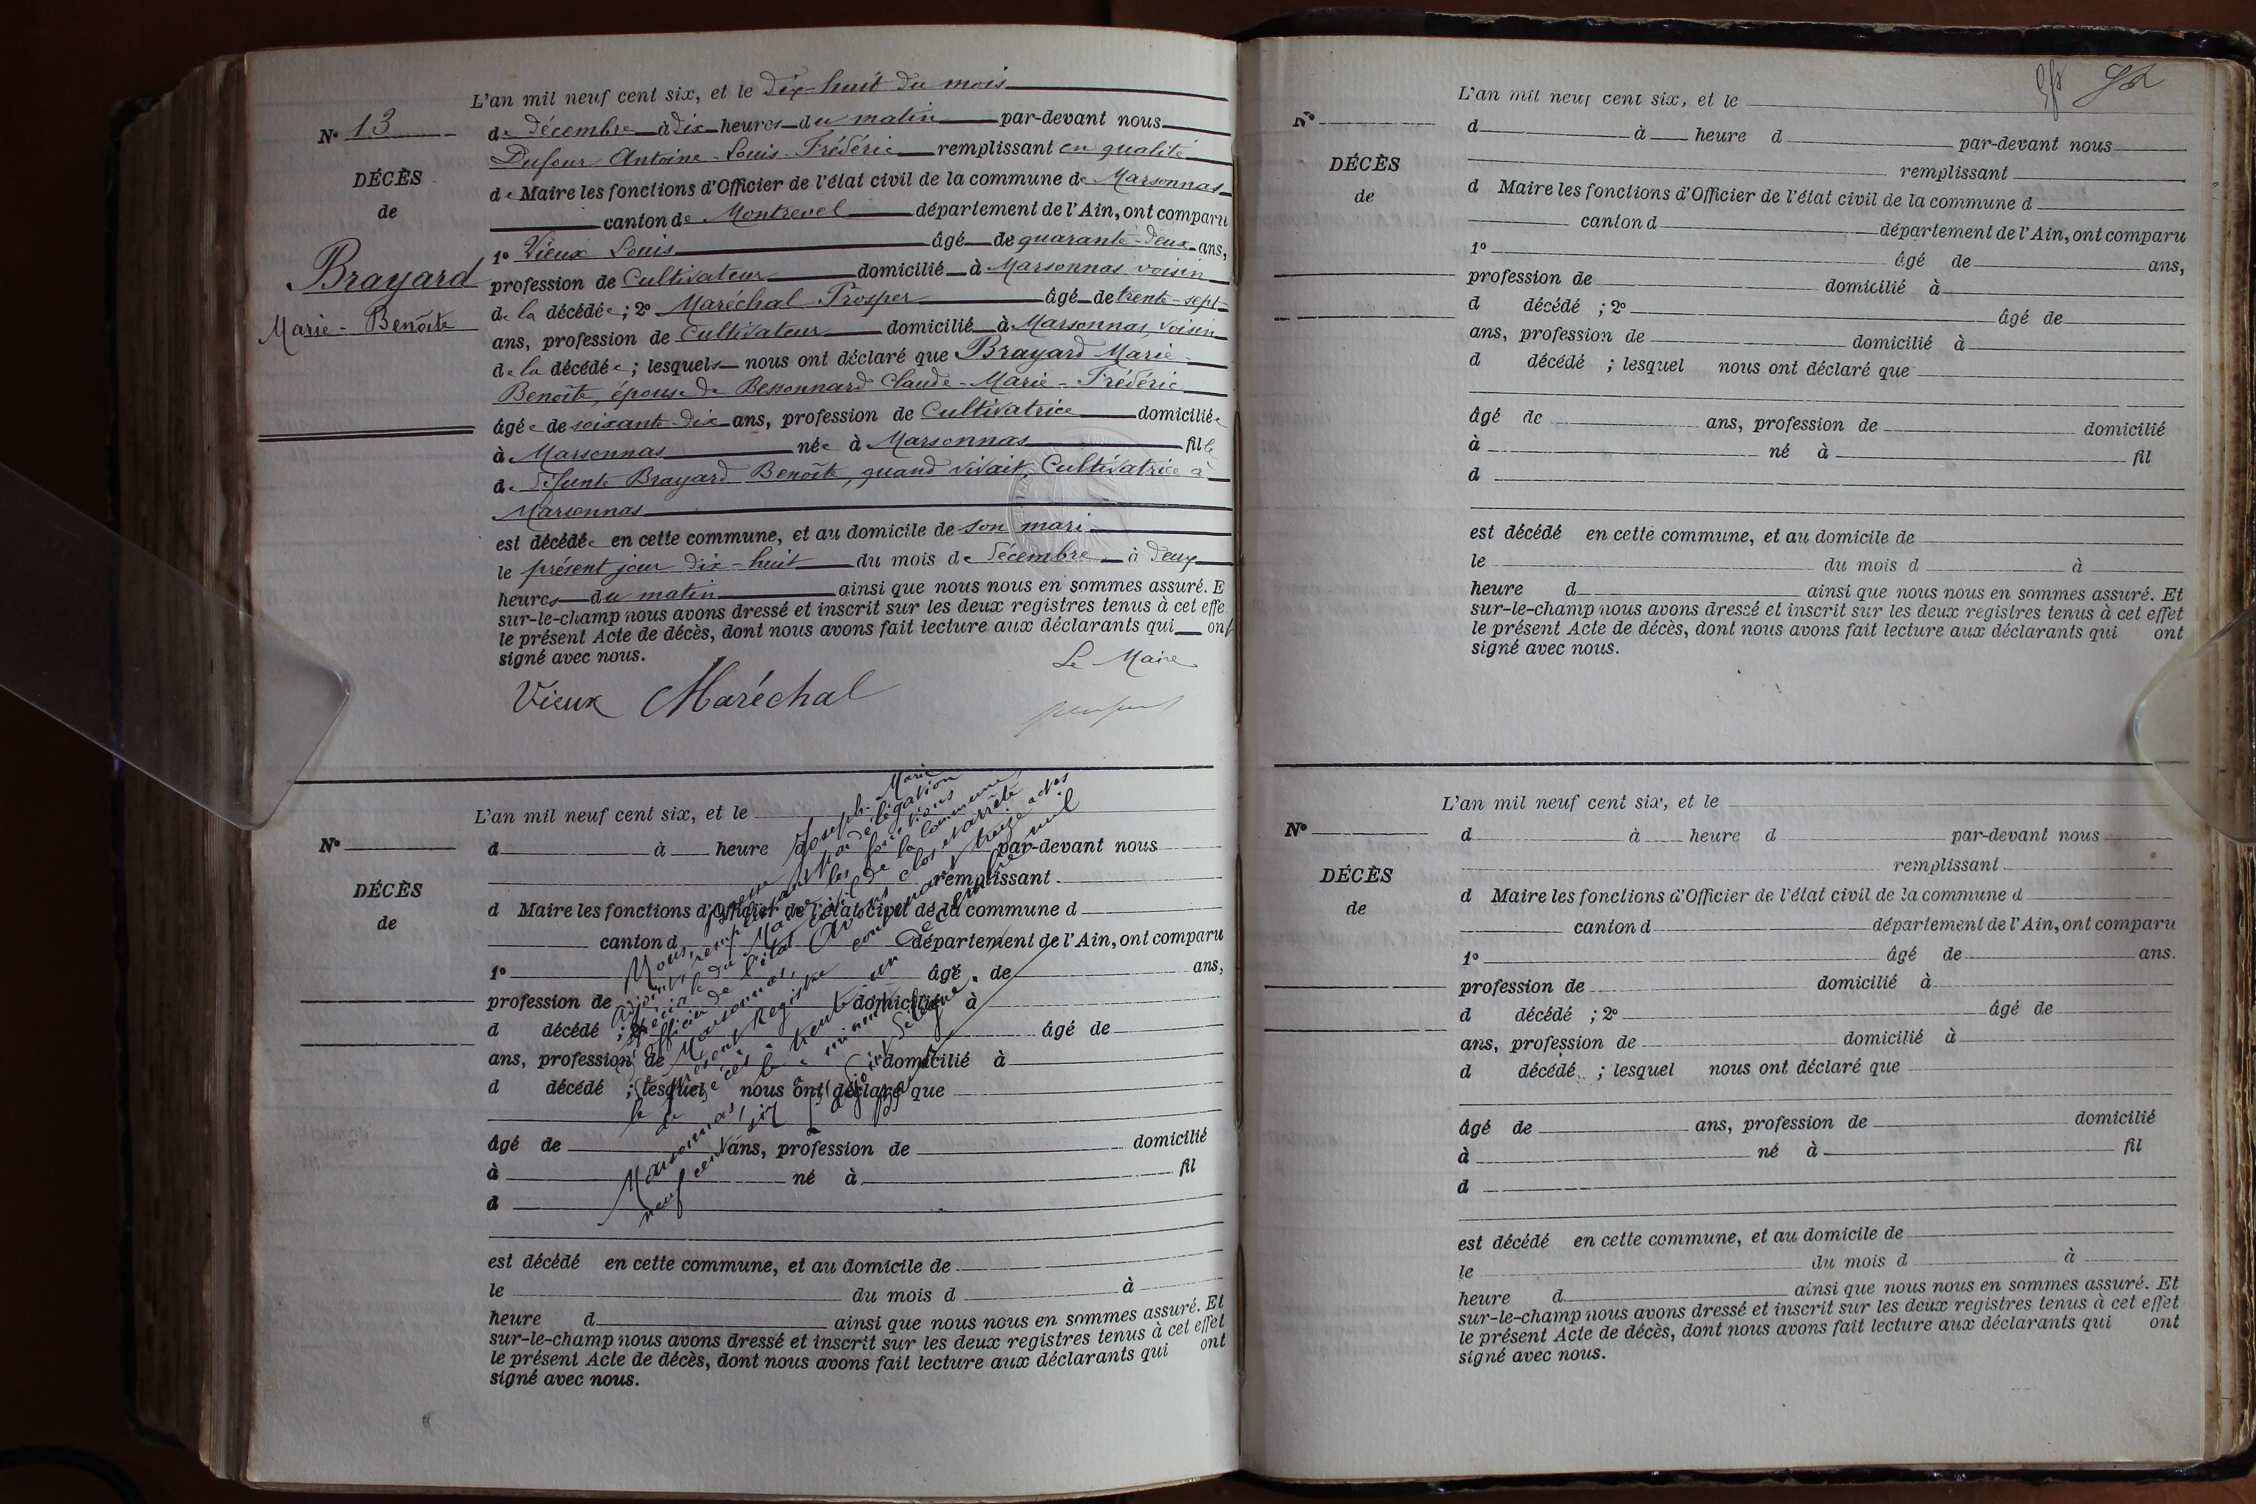 L'an mil neuf cent six, et le dix-huit du mois
N° 13
de décembre à dix heures du matin par-devant nous
Dufour Antoine-Louis-Frédéric remplissant en qualité
DÉCÈS
de
de Maire les fonctions d'Officier de l'état civil de la commune de Marsonnas
canton de Montrevel département de l'Ain, ont comparu
1° Vieux Louis âgé de quarante-deux ans,
Brayard
Marie-Benoîte
profession de Cultivateur domicilié à Marsonnas voisin
de la décédée; 2° Maréchal Prosper âgé de trente-sept
ans, profession de Cultivateur domicilié à Marsonnas, voisin
de la décédée; lesquels nous ont déclaré que Brayard Marie-
Benoîte, épouse de Bessonnard Claude-Marie-Frédéric
âgée de soixante-dix ans, profession de Cultivatrice domiciliée
à Marsonnas née à Marsonnas fille
de défunte Brayard Benoîte, quand vivait Cultivatrice à
Marsonnas
est décédée en cette commune, et au domicile de son mari
le présent jour dix-huit du mois de décembre à deux
heures du matin ainsi que nous nous en sommes assuré. E
sur-le-champ nous avons dressé et inscrit sur les deux registres tenus à cet effe
le présent Acte de décès, dont nous avons fait lecture aux déclarants qui ont
signé avec nous.
Le Maire
Vieux Maréchal
L'an mil neuf cent six, et le
N°
d à heure d par-devant nous
remplissant
DÉCÈS
de
d Maire les fonctions d'Officier de l'état civil de la commune d
canton d département de l'Ain, ont comparu
1° âgé de ans,
profession de domicilié à
d décédé ; 2° âgé de
ans, profession de domicilié à
d décédé ; lesquel nous ont déclaré que
âgé de ans, profession de domicilié
à né à fil
d
est décédé en cette commune, et au domicile de
le du mois d à
heure d ainsi que nous nous en sommes assuré. Et
sur-le-champ nous avons dressé et inscrit sur les deux registres tenus à cet effet
le présent Acte de décès, dont nous avons fait lecture aux déclarants qui ont
signé avec nous.
Nous, Joseph-Marie
adjoint, remplissant par délégation
spéciale du Maire les fonctions
d'officier de l'état civil de la commune
de Marsonnas, avons clos et arrêté
le présent Registre contenant treize actes
de décès le trente-un décembre mil
Marsonnas,
neuf cent six
L'adjoint délégué,
L'an mil neuf cent six, et le
N°
d à heure d par-devant nous
remplissant
DÉCÈS
de
d Maire les fonctions d'Officier de l'état civil de la commune d
canton d département de l'Ain, ont comparu
1° âgé de ans,
profession de domicilié à
d décédé ; 2° âgé de
ans, profession de domicilié à
d décédé ; lesquel nous ont déclaré que
âgé de ans, profession de domicilié
à né à fil
d
est décédé en cette commune, et au domicile de
le du mois d à
heure d ainsi que nous nous en sommes assuré. Et
sur-le-champ nous avons dressé et inscrit sur les deux registres tenus à cet effet
le présent Acte de décès, dont nous avons fait lecture aux déclarants qui ont
signé avec nous.
L'an mil neuf cent six, et le
N°
d à heure d par-devant nous
remplissant
DÉCÈS
de
d Maire les fonctions d'Officier de l'état civil de la commune d
canton d département de l'Ain, ont comparu
1° âgé de ans.
profession de domicilié à
d décédé ; 2° âgé de
ans, profession de domicilié à
d décédé ; lesquel nous ont déclaré que
âgé de ans, profession de domicilié
à né à fil
d
est décédé en cette commune, et au domicile de
le du mois d à
heure d ainsi que nous nous en sommes assuré. Et
sur-le-champ nous avons dressé et inscrit sur les deux registres tenus à cet effet
le présent Acte de décès, dont nous avons fait lecture aux déclarants qui ont
signé avec nous.